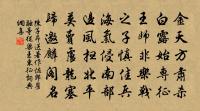 金天方肅殺
白露始專征
王師非樂戰
之子慎佳兵
海氣侵南部
邊風掃北平
莫賣盧龍塞
歸邀麟閣名
陳子昂送著作佐郎崔
融等從梁王東征詞典
網集